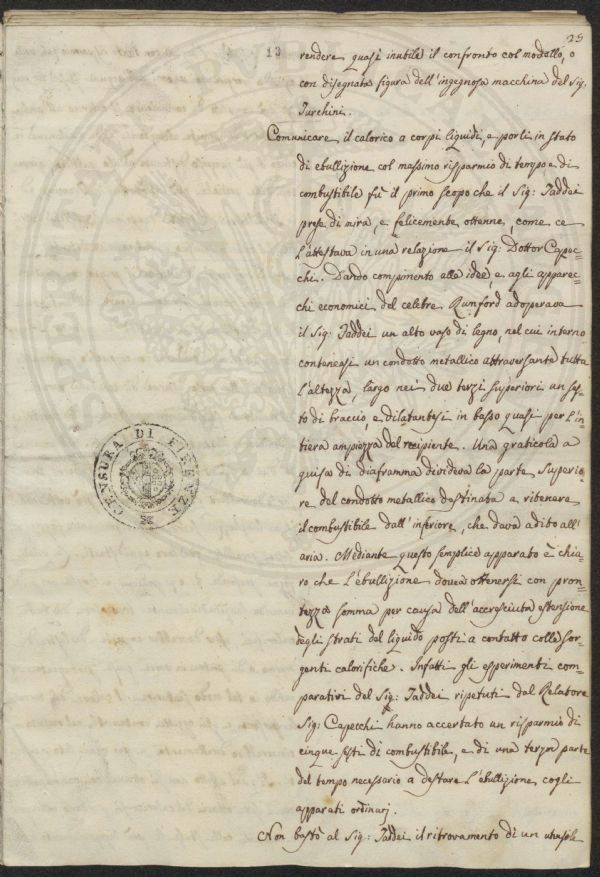 23
13
rendere quasi inutile il confronto col modello, o
con disegnata figura dell'ingegnosa macchina del Sig.
Turchini.
Comunicare il calorico a corpi liquidi, e porli in stato
di ebullizione col massimo risparmio di tempo e di
combustibile fù il primo scopo che il Sig: Taddei
prese di mira, e felicemente ottenne, come ce
l'attestava in una relazione il Sig: Dottor Capec=
chi. Dando compimento alle idee, e agli apparec=
chi economici del celebre Runford adoperava
il Sig: Taddei un alto vaso di legno, nel cui interno
conteneasi un condotto metallico attraversante tutta
l'altezza, largo nei due terzi superiori un ses=
to di braccio, e dilatantesi in basso quasi per l'in=
tiera ampiezza del recipiente. Una graticola a
guisa di diaframma divideva la parte superio=
re del condotto metallico destinata a ritenere
il combustibile dall'inferiore, che dava adito all'
aria. Mediante questo semplice apparato è chia=
ro che l'ebullizione dovea ottenersi con pron=
tezza somma per causa dell'accresciuta estensione
degli strati del liquido posti a contatto colle sor=
genti calorifiche. Infatti gli esperimenti com=
parativi del Sig: Taddei ripetuti dal Relatore
Sig: Capecchi hanno accertato un risparmio di
cinque sesti di combustibile, e di una terza parte
del tempo necessario a destare l'ebullizione cogli
apparati ordinarj.
Non bastò al Sig: Taddei il ritrovamento di un utensile
CENSURA DI FIRENZE